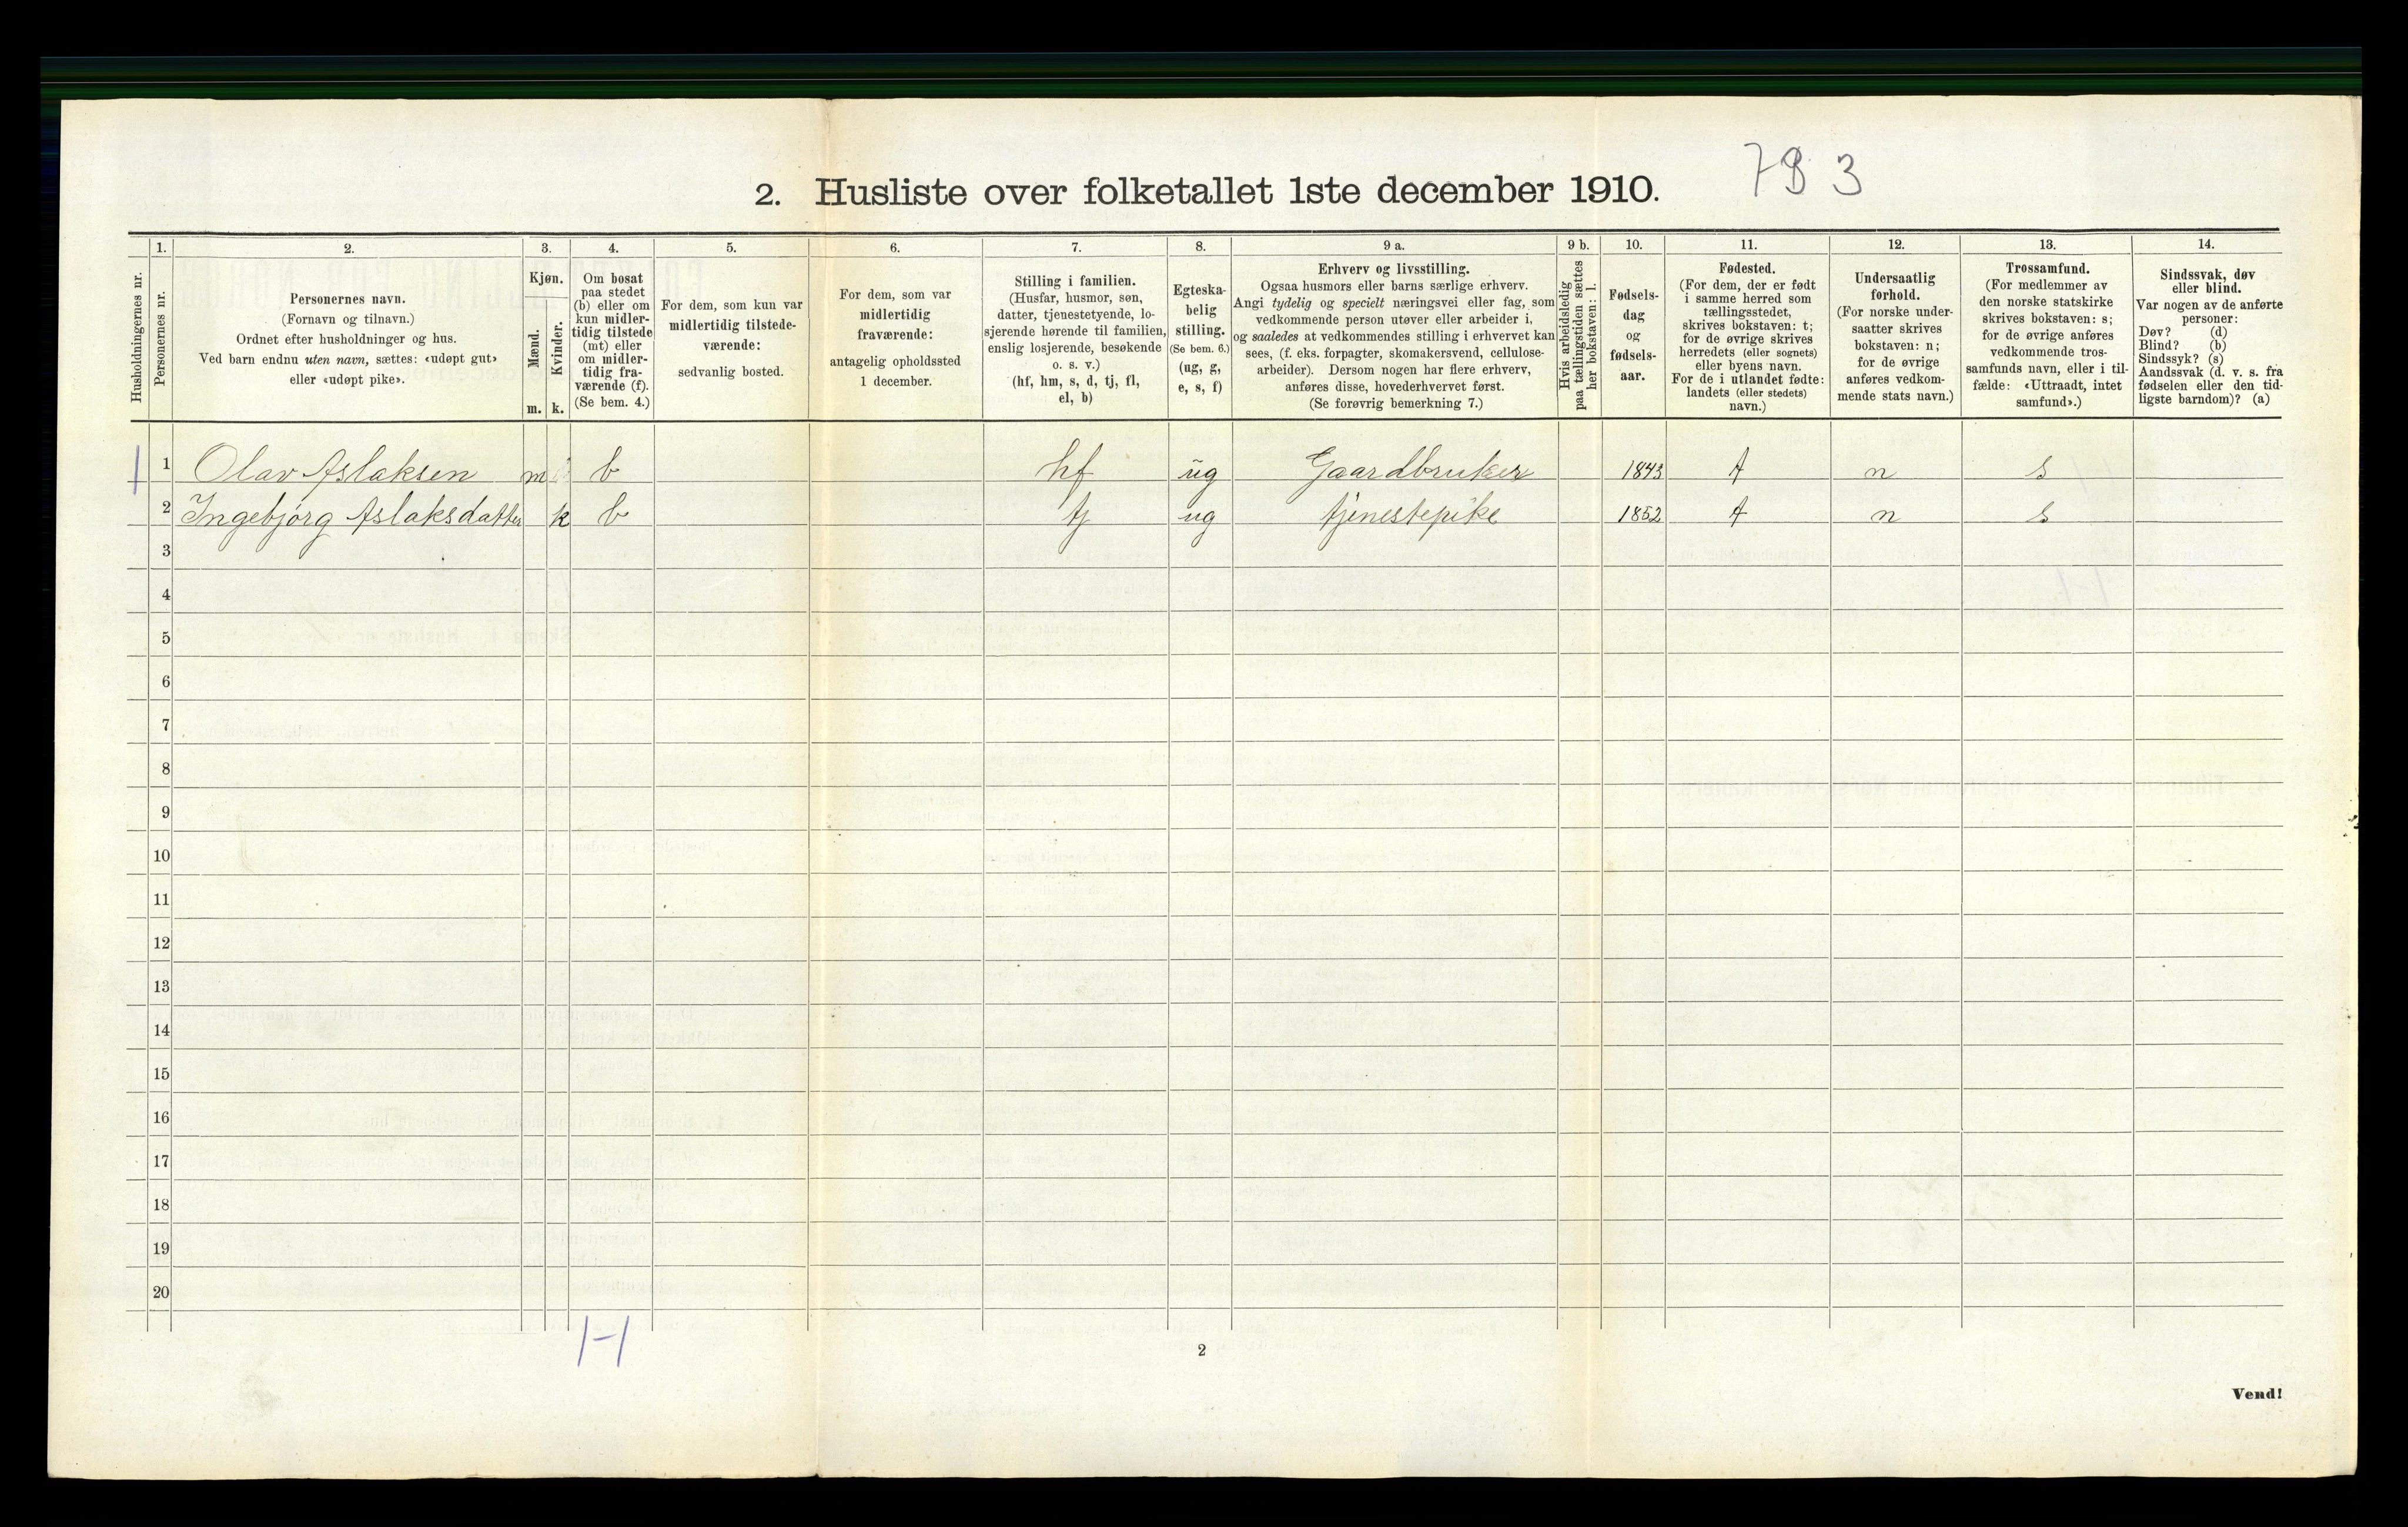 2. Husliste over folketallet 1ste december 1910.
1. 2. 3. 4. 5. 6. 7. 8. 9 a. 9 b. 10. 11. 12. 13. 14.
Husholdningernes nr.
Personernes nr.
Personernes navn.
(Fornavn og tilnavn.)
Ordnet efter husholdninger og hus.
Ved barn endnu uten navn, sættes: «udøpt gut»
eller «udøpt pike».
Kjøn.
Mænd.
Kvinder.
m. k.
Om bosat
paa stedet
(b) eller om
kun midler-
tidig tilstede
(mt) eller
om midler-
tidig fra-
værende (f).
(Se bem. 4.)
For dem, som kun var
midlertidig tilstede-
værende:
sedvanlig bosted.
For dem, som var
midlertidig
fraværende:
antagelig opholdssted
1 december.
Stilling i familien.
(Husfar, husmor, søn,
datter, tjenestetyende, lo-
sjerende hørende til familien,
enslig losjerende, besøkende
o. s. v.)
(hf, hm, s, d, tj, fl,
el, b)
Egteska-
belig
stilling.
(Se bem. 6.)
(ug, g,
e, s, f)
Erhverv og livsstilling.
Ogsaa husmors eller barns særlige erhverv.
Angi tydelig og specielt næringsvei eller fag, som
vedkommende person utøver eller arbeider i,
og saaledes at vedkommendes stilling i erhvervet kan
sees, (f. eks. forpagter, skomakersvend, cellulose-
arbeider). Dersom nogen har flere erhverv,
anføres disse, hovederhvervet først.
(Se forøvrig bemerkning 7.)
Hvis arbeidsledig
paa tællingstiden sættes
her bokstaven: l.
Fødsels-
dag
og
fødsels-
aar.
Fødested.
(For dem, der er født
i samme herred som
tællingsstedet,
skrives bokstaven: t;
for de øvrige skrives
herredets (eller sognets)
eller byens navn.
For de i utlandet fødte:
landets (eller stedets)
navn.)
Undersaatlig
forhold.
(For norske under-
saatter skrives
bokstaven: n;
for de øvrige
anføres vedkom-
mende stats navn.)
Trossamfund.
(For medlemmer av
den norske statskirke
skrives bokstaven: s;
for de øvrige anføres
vedkommende tros-
samfunds navn, eller i til-
fælde: «Uttraadt, intet
samfund».)
Sindssvak, døv
eller blind.
Var nogen av de anførte
personer:
Døv? (d)
Blind? (b)
Sindssyk? (s)
Aandssvak (d. v. s. fra
fødselen eller den tid-
ligste barndom)? (a)
1 1 Olav Aslaksen m b hf ug Gaardbruker 1843 t n s
2 Ingebjørg Aslaksdatter k b tj ug tjenestepike 1852 t n s
3
4
5
6
7
8
9
10
11
12
13
14
15
16
17
18
19
20
1-1
2
Vend!